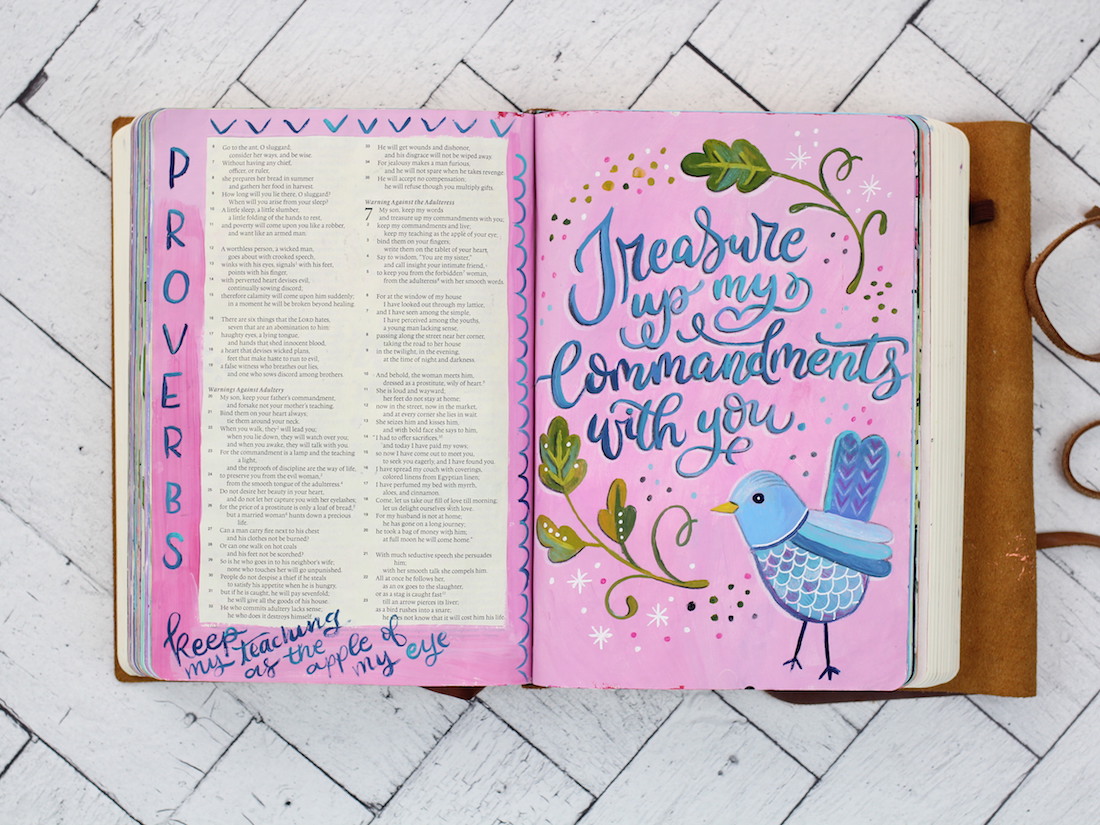 PROVERBS
6 Go to the ant, O sluggard;
consider her ways, and be wise.
7 Without having any chief,
officer, or ruler,
8 she prepares her bread in summer
and gathers her food in harvest.
9 How long will you lie there, O sluggard?
When will you arise from your sleep?
10 A little sleep, a little slumber,
a little folding of the hands to rest,
11 and poverty will come upon you like a robber,
and want like an armed man.
12 A worthless person, a wicked man,
goes about with crooked speech,
13 winks with his eyes, signals with his feet,
points with his finger,
14 with perverted heart devises evil,
continually sowing discord;
15 therefore calamity will come upon him suddenly;
in a moment he will be broken beyond healing.
16 There are six things that the LORD hates,
seven that are an abomination to him:
17 haughty eyes, a lying tongue,
and hands that shed innocent blood,
18 a heart that devises wicked plans,
feet that make haste to run to evil,
19 a false witness who breathes out lies,
and one who sows discord among brothers.
Warnings Against Adultery
20 My son, keep your father's commandment,
and forsake not your mother's teaching.
21 Bind them on your heart always;
tie them around your neck.
22 When you walk, they will lead you;
when you lie down, they will watch over you;
and when you awake, they will talk with you.
23 For the commandment is a lamp and the teaching
a light,
and the reproofs of discipline are the way of life,
24 to preserve you from the evil woman,
from the smooth tongue of the adulteress.
25 Do not desire her beauty in your heart,
and do not let her capture you with her eyelashes;
26 for the price of a prostitute is only a loaf of bread,
but a married woman hunts down a precious
life.
27 Can a man carry fire next to his chest
and his clothes not be burned?
28 Or can one walk on hot coals
and his feet not be scorched?
29 So is he who goes in to his neighbor's wife;
none who touches her will go unpunished.
30 People do not despise a thief if he steals
to satisfy his appetite when he is hungry,
31 but if he is caught, he will pay sevenfold;
he will give all the goods of his house.
32 He who commits adultery lacks sense;
he who does it destroys himself.
33 He will get wounds and dishonor,
and his disgrace will not be wiped away.
34 For jealousy makes a man furious,
and he will not spare when he takes revenge.
35 He will accept no compensation;
he will refuse though you multiply gifts.
Warning Against the Adulteress
7 My son, keep my words
and treasure up my commandments with you;
2 keep my commandments and live;
keep my teaching as the apple of your eye;
3 bind them on your fingers;
write them on the tablet of your heart.
4 Say to wisdom, "You are my sister,"
and call insight your intimate friend,
5 to keep you from the forbidden woman,
from the adulteress with her smooth words.
6 For at the window of my house
I have looked out through my lattice,
7 and I have seen among the simple,
I have perceived among the youths,
a young man lacking sense,
8 passing along the street near her corner,
taking the road to her house
9 in the twilight, in the evening,
at the time of night and darkness.
10 And behold, the woman meets him,
dressed as a prostitute, wily of heart.
11 She is loud and wayward,
her feet do not stay at home;
12 now in the street, now in the market,
and at every corner she lies in wait.
13 She seizes him and kisses him,
and with bold face she says to him,
14 "I had to offer sacrifices,
and today I have paid my vows;
15 so now I have come out to meet you,
to seek you eagerly, and I have found you.
16 I have spread my couch with coverings,
colored linens from Egyptian linen;
17 I have perfumed my bed with myrrh,
aloes, and cinnamon.
18 Come, let us take our fill of love till morning;
let us delight ourselves with love.
19 For my husband is not at home;
he has gone on a long journey;
20 he took a bag of money with him;
at full moon he will come home."
21 With much seductive speech she persuades
him;
with her smooth talk she compels him.
22 All at once he follows her,
as an ox goes to the slaughter,
or as a stag is caught fast
23 till an arrow pierces its liver;
as a bird rushes into a snare;
he does not know that it will cost him his life.
keep
my teaching
as the
apple of
my eye
Treasure
up my
Commandments
with you.